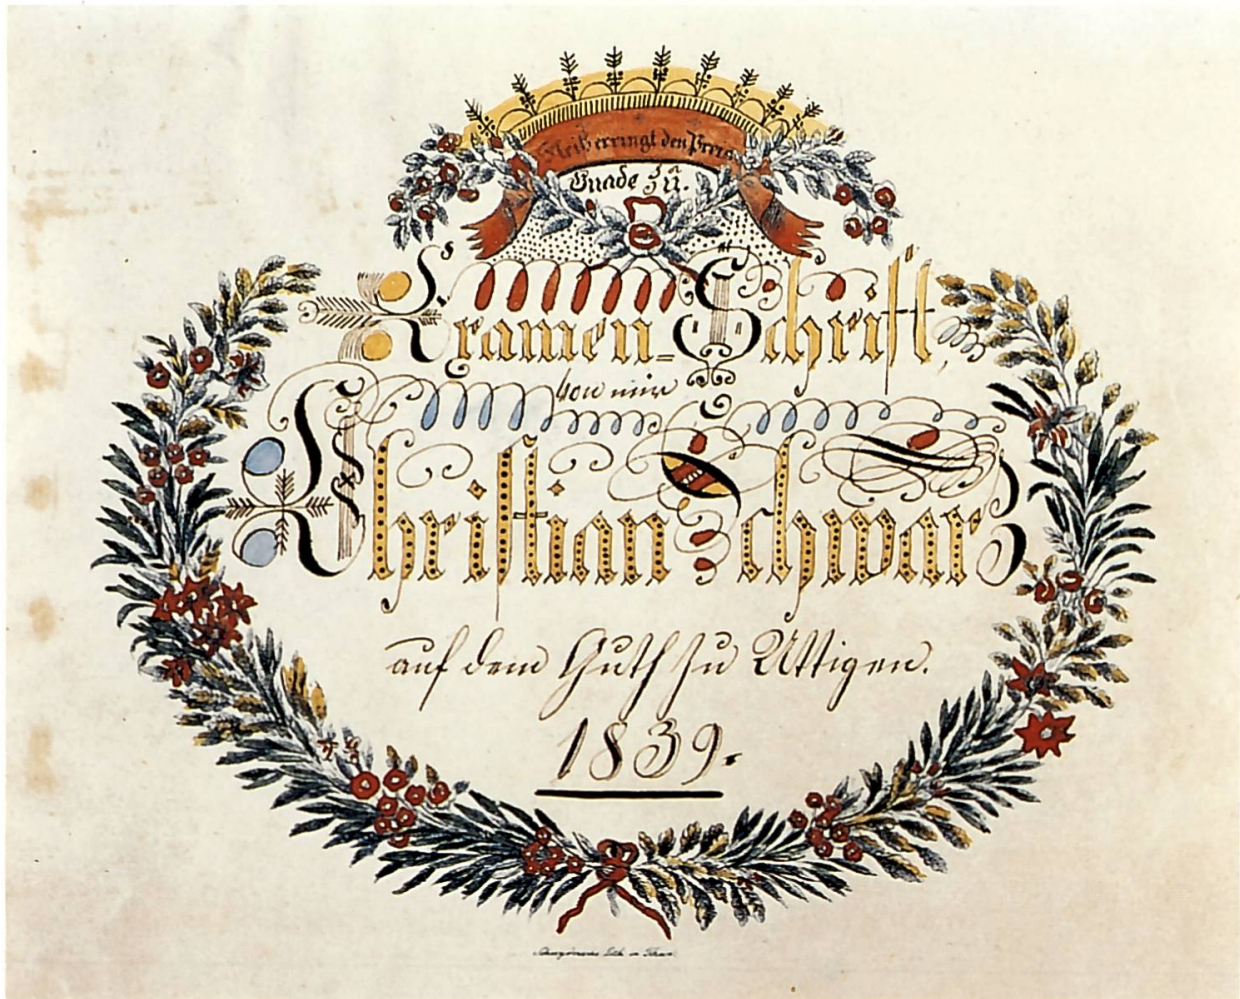 Fleiß erringt den Preis
Gnade zů.
Examen=Schrift,
von mir
Christian Schwarz
auf dem Guth zu Uttigen.
1839.
Lith. in Thun.